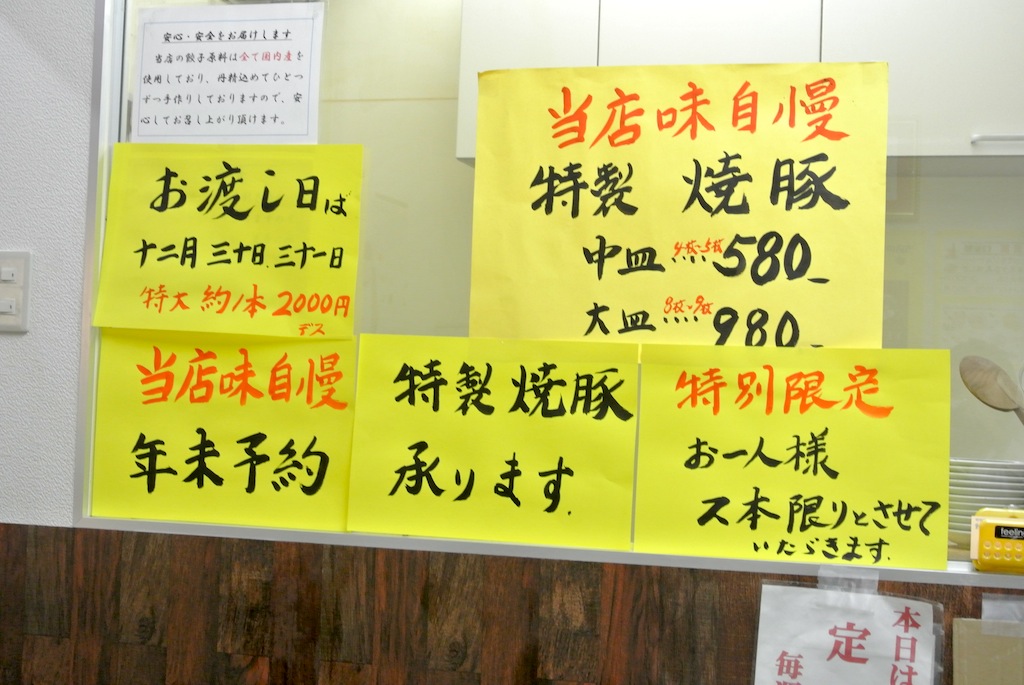 安心・安全をお届けします
当店の餃子原料は全て国内産を
使用しており、丹精込めてひとつ
ずつ手作りしておりますので、安
心してお召し上がり頂けます。
当店味自慢
特製 焼豚
中皿 4枚〜5枚 580_
大皿 8枚〜9枚 980_
お渡し日は
十二月 三十日、三十一日
特大 約1本 2000円
デス
当店味自慢
年末予約
特製焼豚
承ります.
特別限定
お一人様
2本限りとさせて
いただきます.
feeling
本日は
定
毎